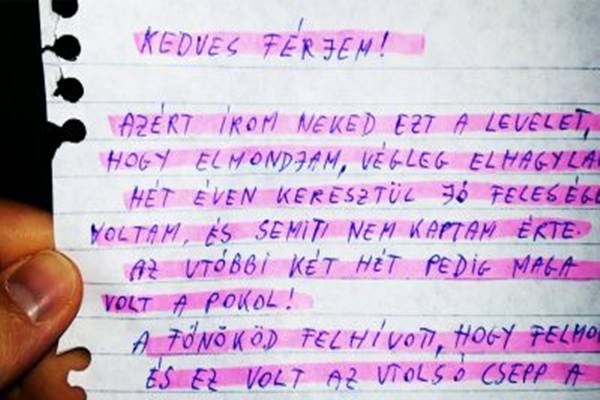 KEDVES FÉRJEM!
AZÉRT ÍROM NEKED EZT A LEVELET,
HOGY ELMONDJAM, VÉGLEG ELHAGYLA
HÉT ÉVEN KERESZTÜL JÓ FELESÉGE
VOLTAM, ÉS SEMIT NEM KAPTAM ÉRTE.
AZ UTÓBBI KÉT HÉT PEDIG MAGA
VOLT A POKOL!
A FŐNÖKÖD FELHÍVOTT, HOGY FELMO
ÉS EZ VOLT AZ UTOLSÓ CSEPP A